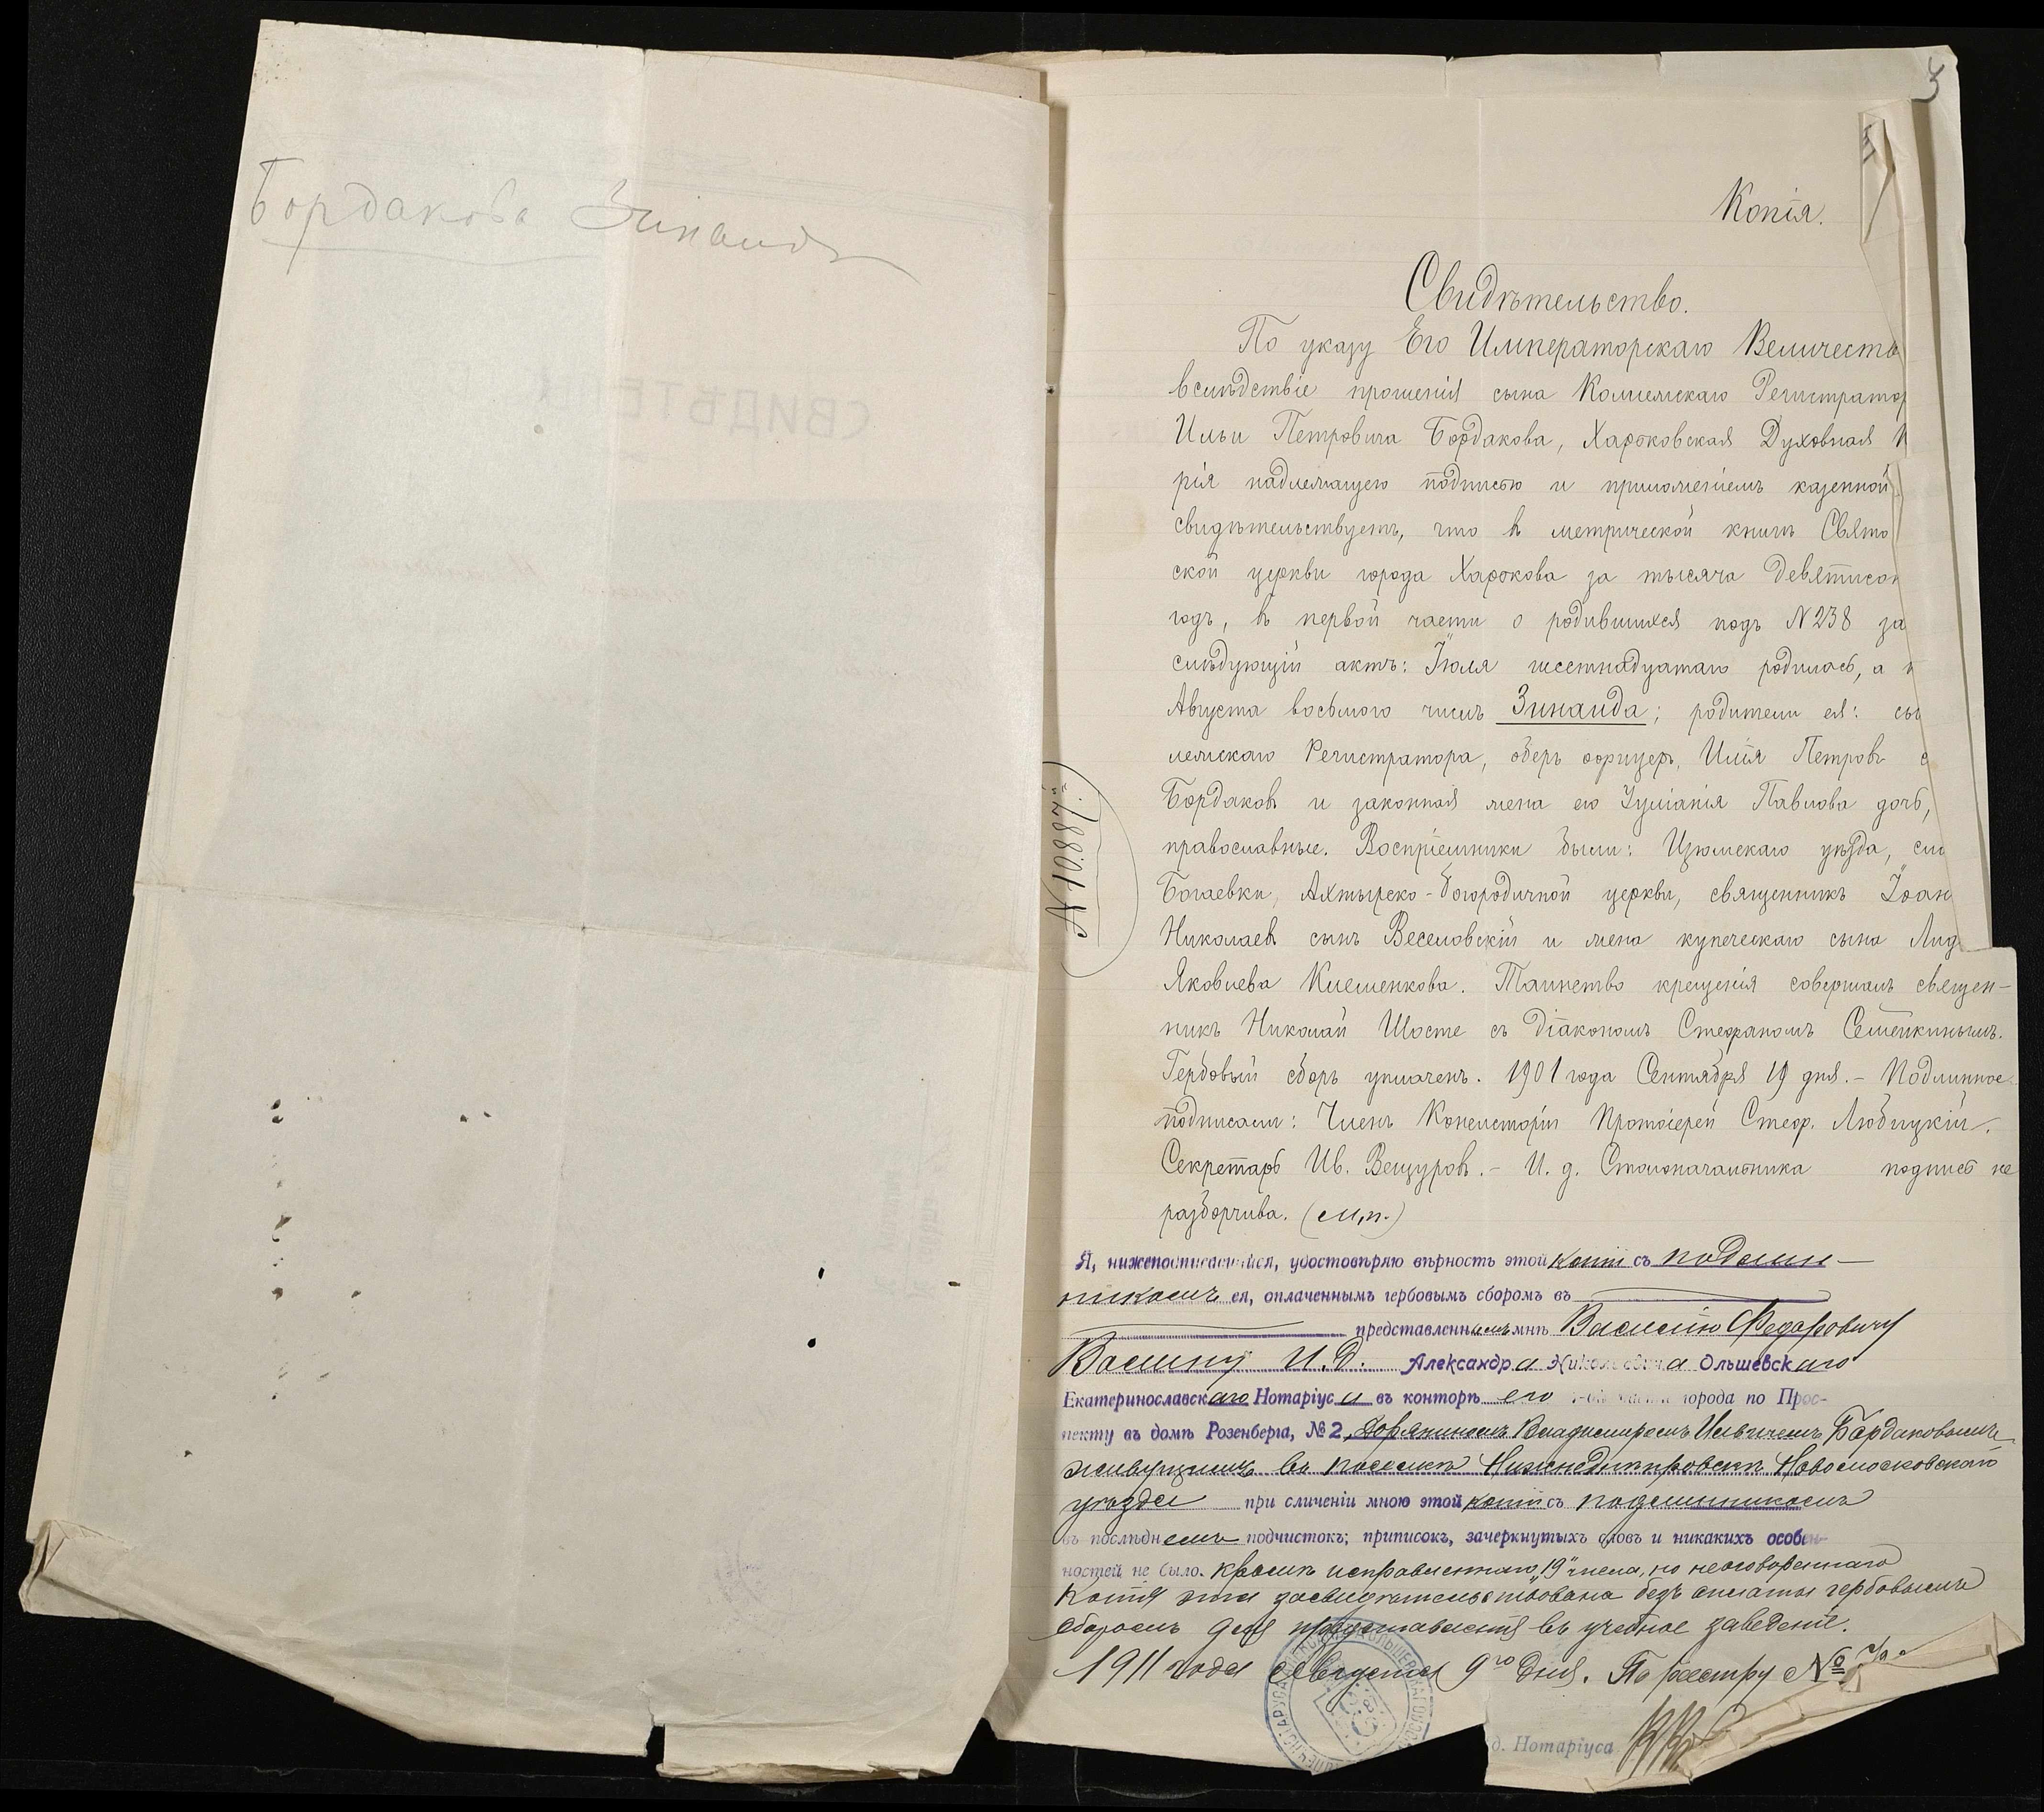 Бордакова Зинаида
СВИДѢТЕ
3
Копія.
Свидѣтельство.
По указу Его Императорскаго Величеств
вслѣдствіе прошенія сына Коллежскаго Регистратор
Ильи Петровича Бордакова, Харьковская Духовная К
рія надлежащею подписью и приложеніемъ казенной
свидѣтельствуетъ, что въ метрической книгѣ Свято
ской церкви города Харькова за тысяча девятисот
годъ, въ первой части о родившихся подъ №238 за
слѣдующій актъ: Іюля шестнадцатаго родилась, а к
Августа восьмого числъ Зинаида; родители ея: сын
лежскаго Регистратора, оберъ офицеръ, Илія Петровъ с
Бордаковъ и законная жена его Іуліанія Павлова дочь,
православные. Воспріемники были: Изюмскаго уѣзда, сл
Богаевки, Ахтырско-Богородичной церкви, священникъ Іоан
Николаевъ сынъ Веселовскій и жена купеческаго сына Лид
Яковлева Клешенкова. Таинство крещенія совершалъ священ-
никъ Николай Шосте съ діакономъ Стефаномъ Семейкинымъ.
Гербовый сборъ уплаченъ. 1901 года Сентября 19 дня.- Подлинное
подписали: Членъ Консисторіи Протоіерей Стеф. Любицкій.
Секретарь Ив. Вещуровъ.- И. д. Столоначальника подпись не
разборчива. (м.п.)
№10887.
Я, нижеподписавшійся, удостовѣряю вѣрность этой копіи съ подлин-
никомъ ея, оплаченнымъ гербовымъ сборомъ въ
представленнымъ мнѣ Василію Федоровичу
Васину И.Д. Александра Николаевича Ольшевскаго
Екатеринославскаго Нотаріуса въ конторѣ его 1-ой части города по Прос-
пекту въ домѣ Розенберга, №2, дворяниномъ Владимиромъ Ильичемъ Бордаковымъ
живущимъ въ поселкѣ Нижнеднѣпровскъ Новомосковскаго
уѣзда при сличеніи мною этой копіи съ подлинникомъ
въ послѣднемъ подчистокъ; приписокъ, зачеркнутыхъ словъ и никакихъ особен-
ностей не было. кромѣ исправленнаго „19“ числа, но неоговореннаго
Копія эта засвидѣтельствована безъ оплаты гербовымъ
сборомъ для представленія въ учебное заведеніе.
1911 года Августа 9го дня. По реестру №
д. Нотаріуса